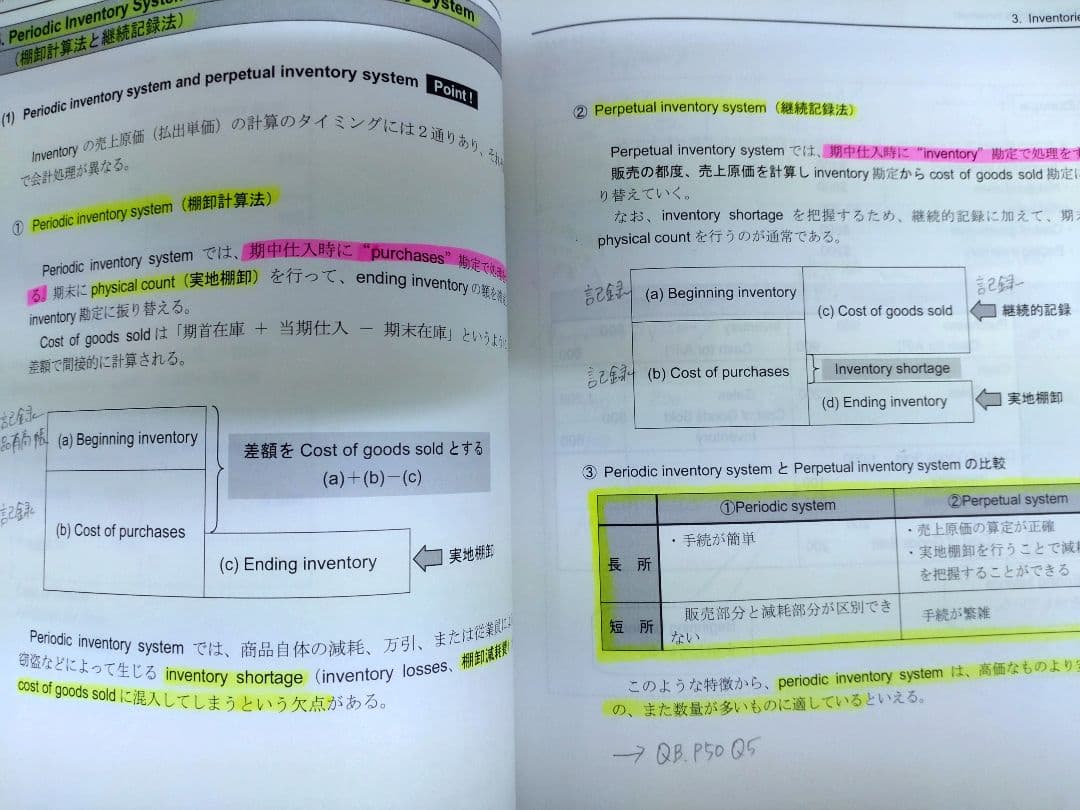 . Periodic Inventory Syste
System
（棚卸計算法と継続記録法）
(1) Periodic inventory system and perpetual inventory system Point!
Inventory の売上原価（払出単価）の計算のタイミングには２通りあり、それ
で会計処理が異なる。
① Periodic inventory system（棚卸計算法）
Periodic inventory system では、期中仕入時に “purchases” 勘定で処理
る。期末に physical count（実地棚卸）を行って、ending inventory の額を
inventory 勘定に振り替える。
Cost of goods sold は「期首在庫 ＋ 当期仕入 － 期末在庫」というように
差額で間接的に計算される。
記録
(a) Beginning inventory
差額を Cost of goods sold とする
(a)＋(b)－(c)
記録
(b) Cost of purchases
(c) Ending inventory
実地棚卸
Periodic inventory system では、商品自体の減耗、万引、または従業員によ
窃盗などによって生じる inventory shortage（inventory losses、棚卸減耗費
cost of goods sold に混入してしまうという欠点がある。
3. Inventorie
② Perpetual inventory system（継続記録法）
Perpetual inventory system では、期中仕入時に “inventory” 勘定で処理をす
販売の都度、売上原価を計算し inventory 勘定から cost of goods sold 勘定に
り替えていく。
なお、inventory shortage を把握するため、継続的記録に加えて、期末
physical count を行うのが通常である。
記録
(a) Beginning inventory
(c) Cost of goods sold
記録
継続的記録
記録
(b) Cost of purchases
Inventory shortage
(d) Ending inventory
実地棚卸
③ Periodic inventory system と Perpetual inventory system の比較
①Periodic system
②Perpetual system
長 所
・手続が簡単
・売上原価の算定が正確
・実地棚卸を行うことで減耗
を把握することができる
短 所
販売部分と減耗部分が区別でき
ない
手続が繁雑
このような特徴から、periodic inventory system は、高価なものより安
の、また数量が多いものに適しているといえる。
→ QB. P50 Q5